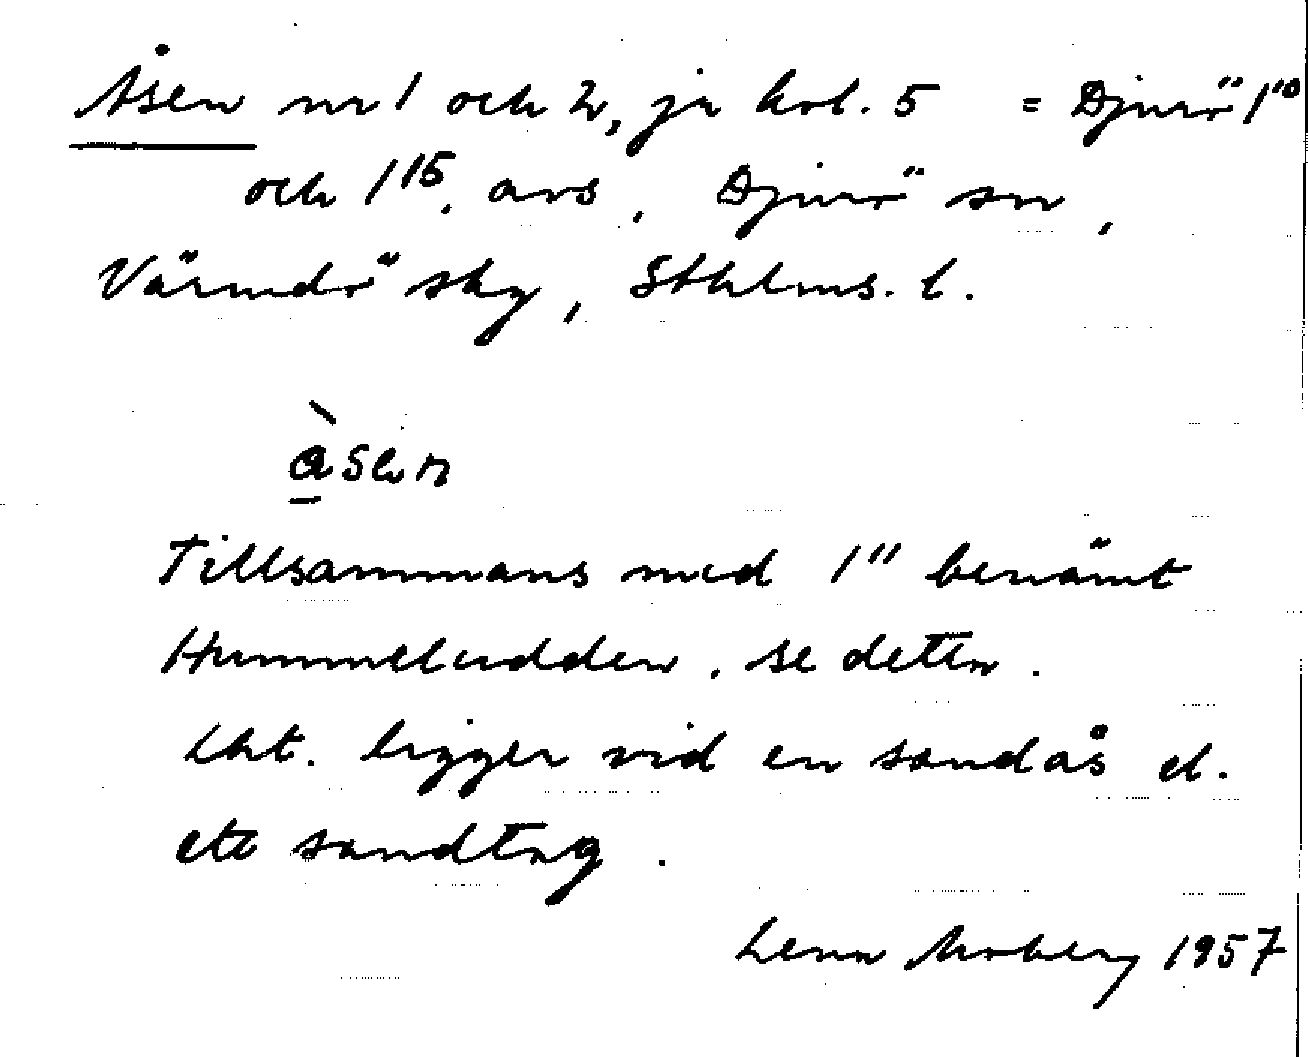 Åsen nr 1 och 2, jr kol. 5 = Djurö 1¹⁰
och 1¹⁵, avs, Djurö sn,
Värmdö skg, Sthlms. l.
å̀sen
Tillsammans med 1¹¹ benämt
Hummeludden, se detta.
Lht. ligger vid en sandås el.
ett sandtag.
Lena Moberg 1957